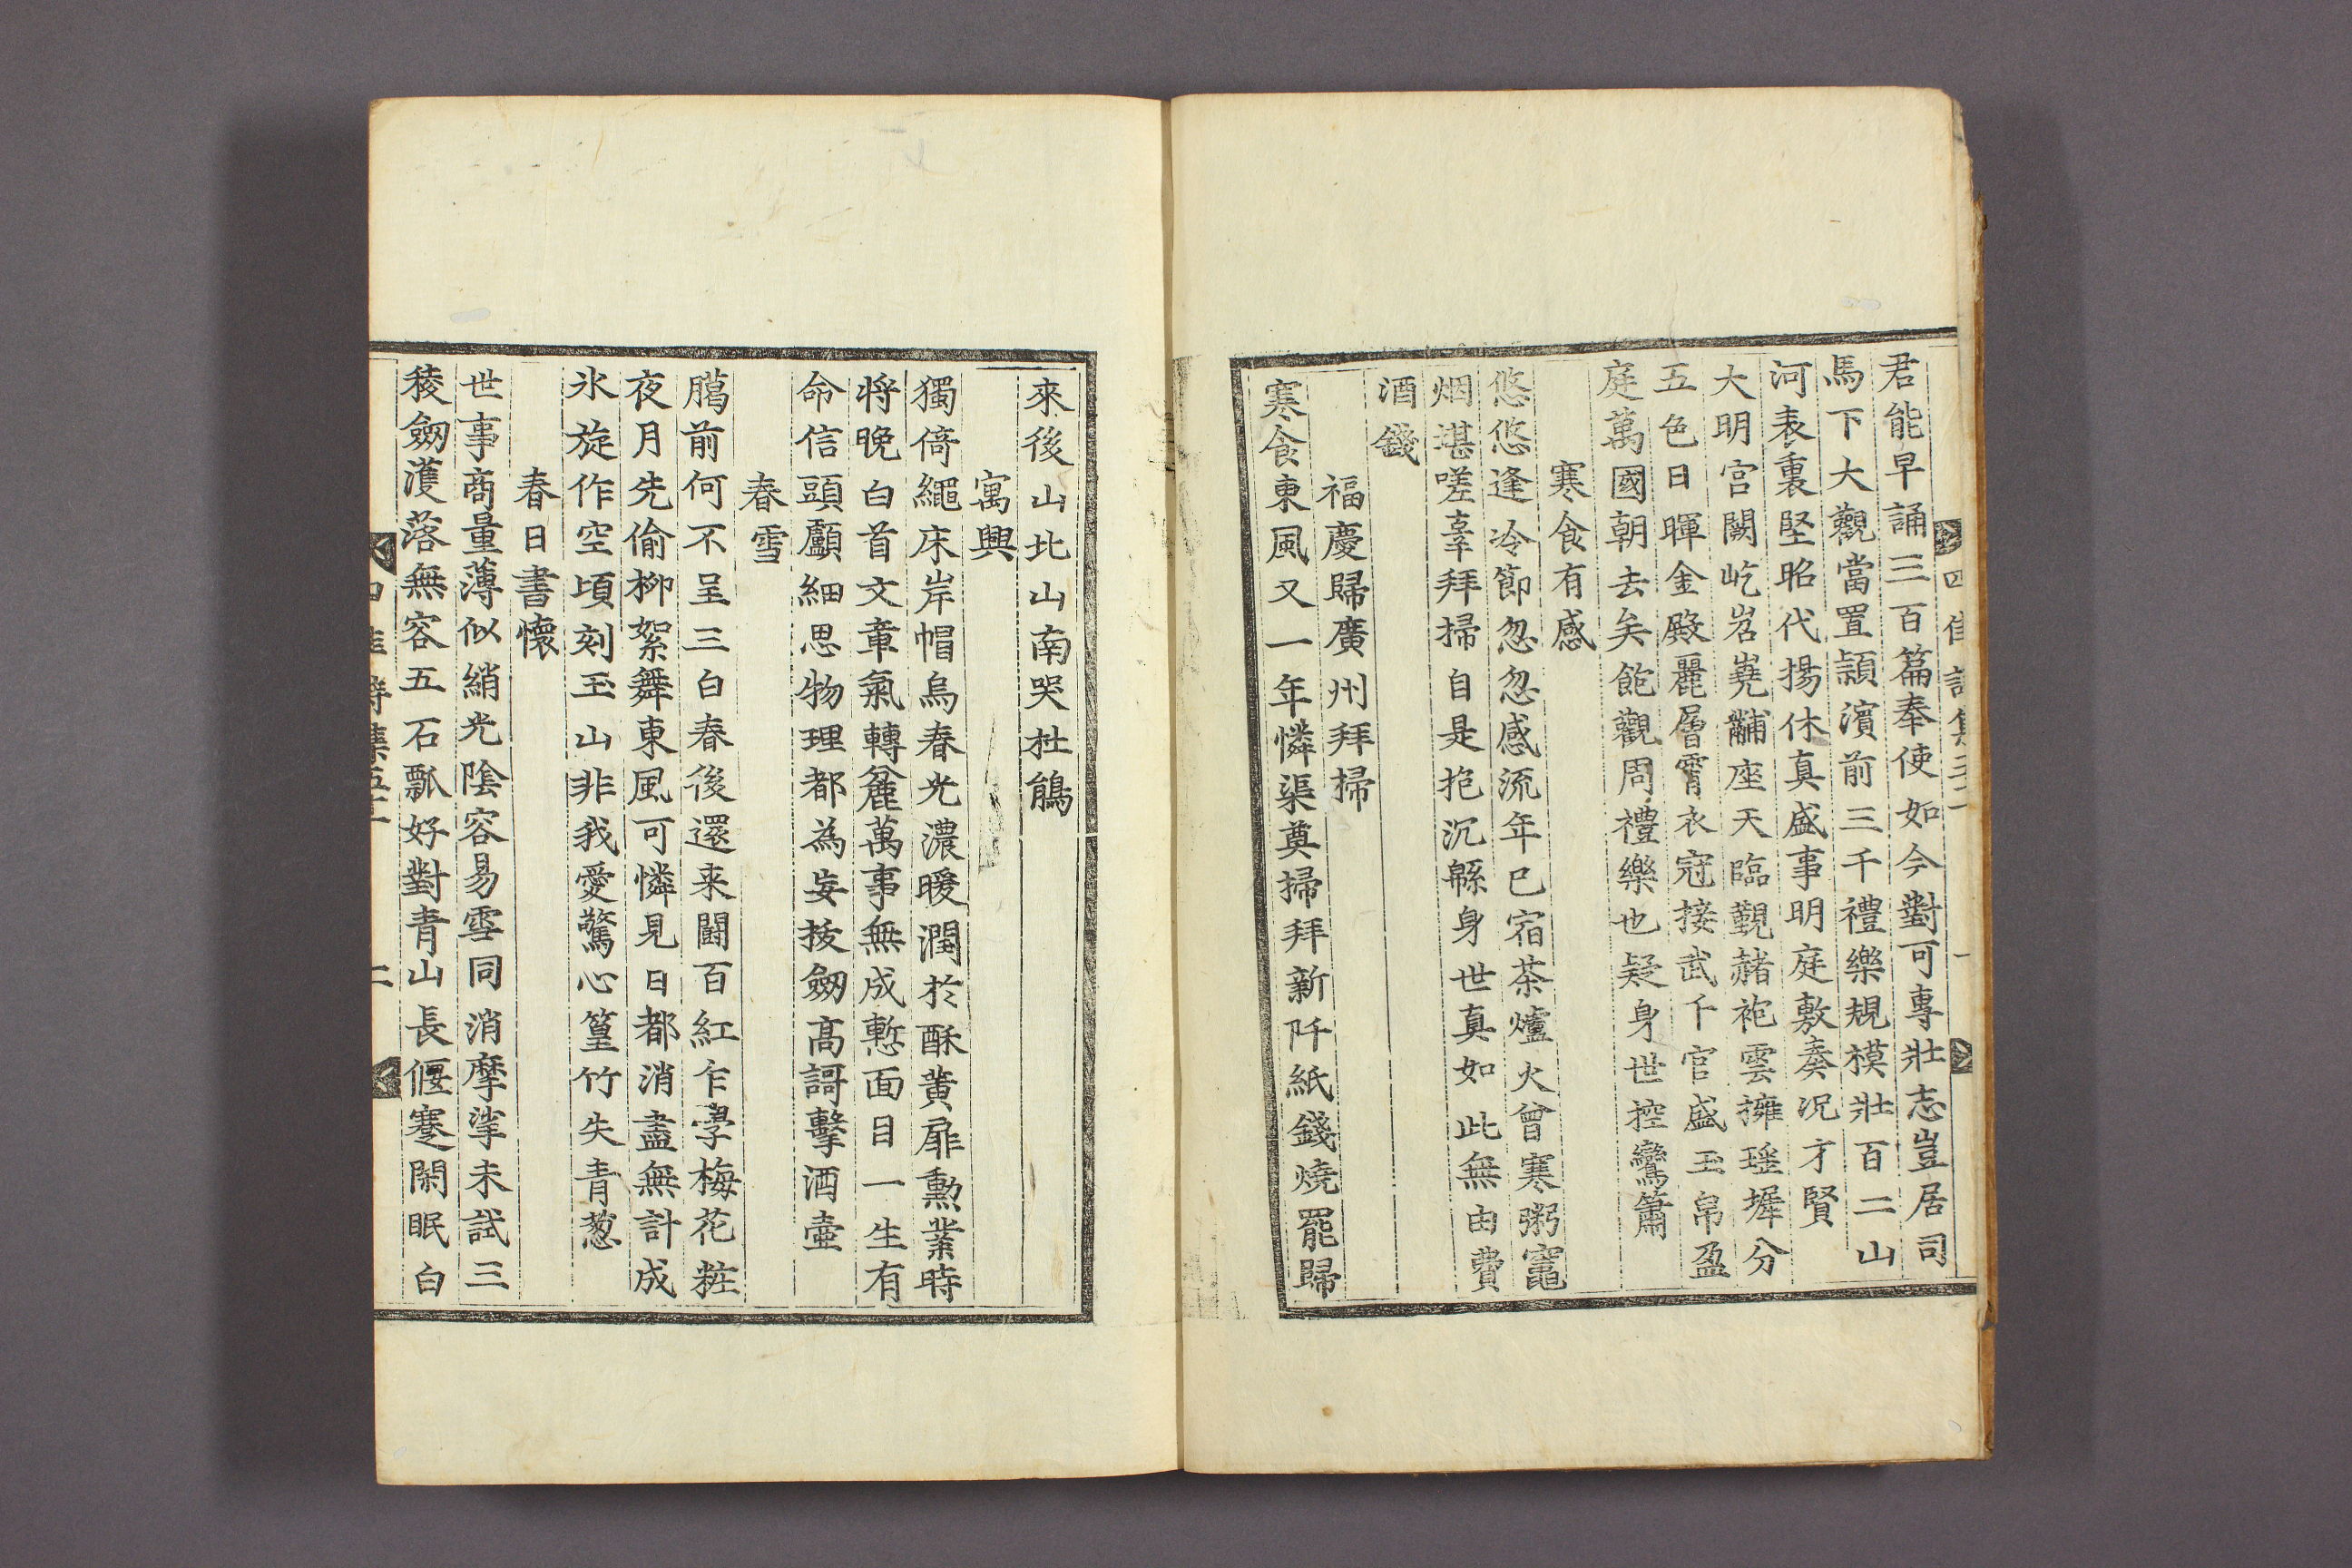 君能早誦三百篇奉使如今對可專壯志豈居司
馬下大觀當置潁濱前三千禮樂規模壯百二山
河表裏堅昭代揚休真盛事明庭敷奏况才賢
大明宫闕屹岧嶤黼座天臨覲赭袍雲擁瑶墀分
五色日暉金殿麗層霄衣冠接武千官盛玉帛盈
庭萬國朝去矣飽觀周禮樂也疑身世控鸞簫
寒食有感
悠悠逢冷節忽忽感流年已宿茶爐火曾寒粥竈
烟堪嗟辜拜掃自是抱沉綿身世真如此無由費
酒錢
福慶歸廣州拜掃
寒食東風又一年憐渠奠掃拜新阡紙錢燒罷歸
來後山北山南哭杜鵑
寓興
獨倚繩床岸帽烏春光濃暖潤於酥黃扉勲業時
將晚白首文章氣轉麄萬事無成慙面目一生有
命信頭顱細思物理都為妄拔劒高謌擊酒壷
春雪
臈前何不呈三白春後還来鬪百紅乍學梅花粧
夜月先偷柳絮舞東風可憐見日都消盡無計成
氷旋作空頃刻玉山非我愛驚心篁竹失青葱
春日書懷
世事商量薄似綃光陰容易雪同消摩挲未試三
稜劒濩落無容五石瓢好對青山長偃蹇閑眠白